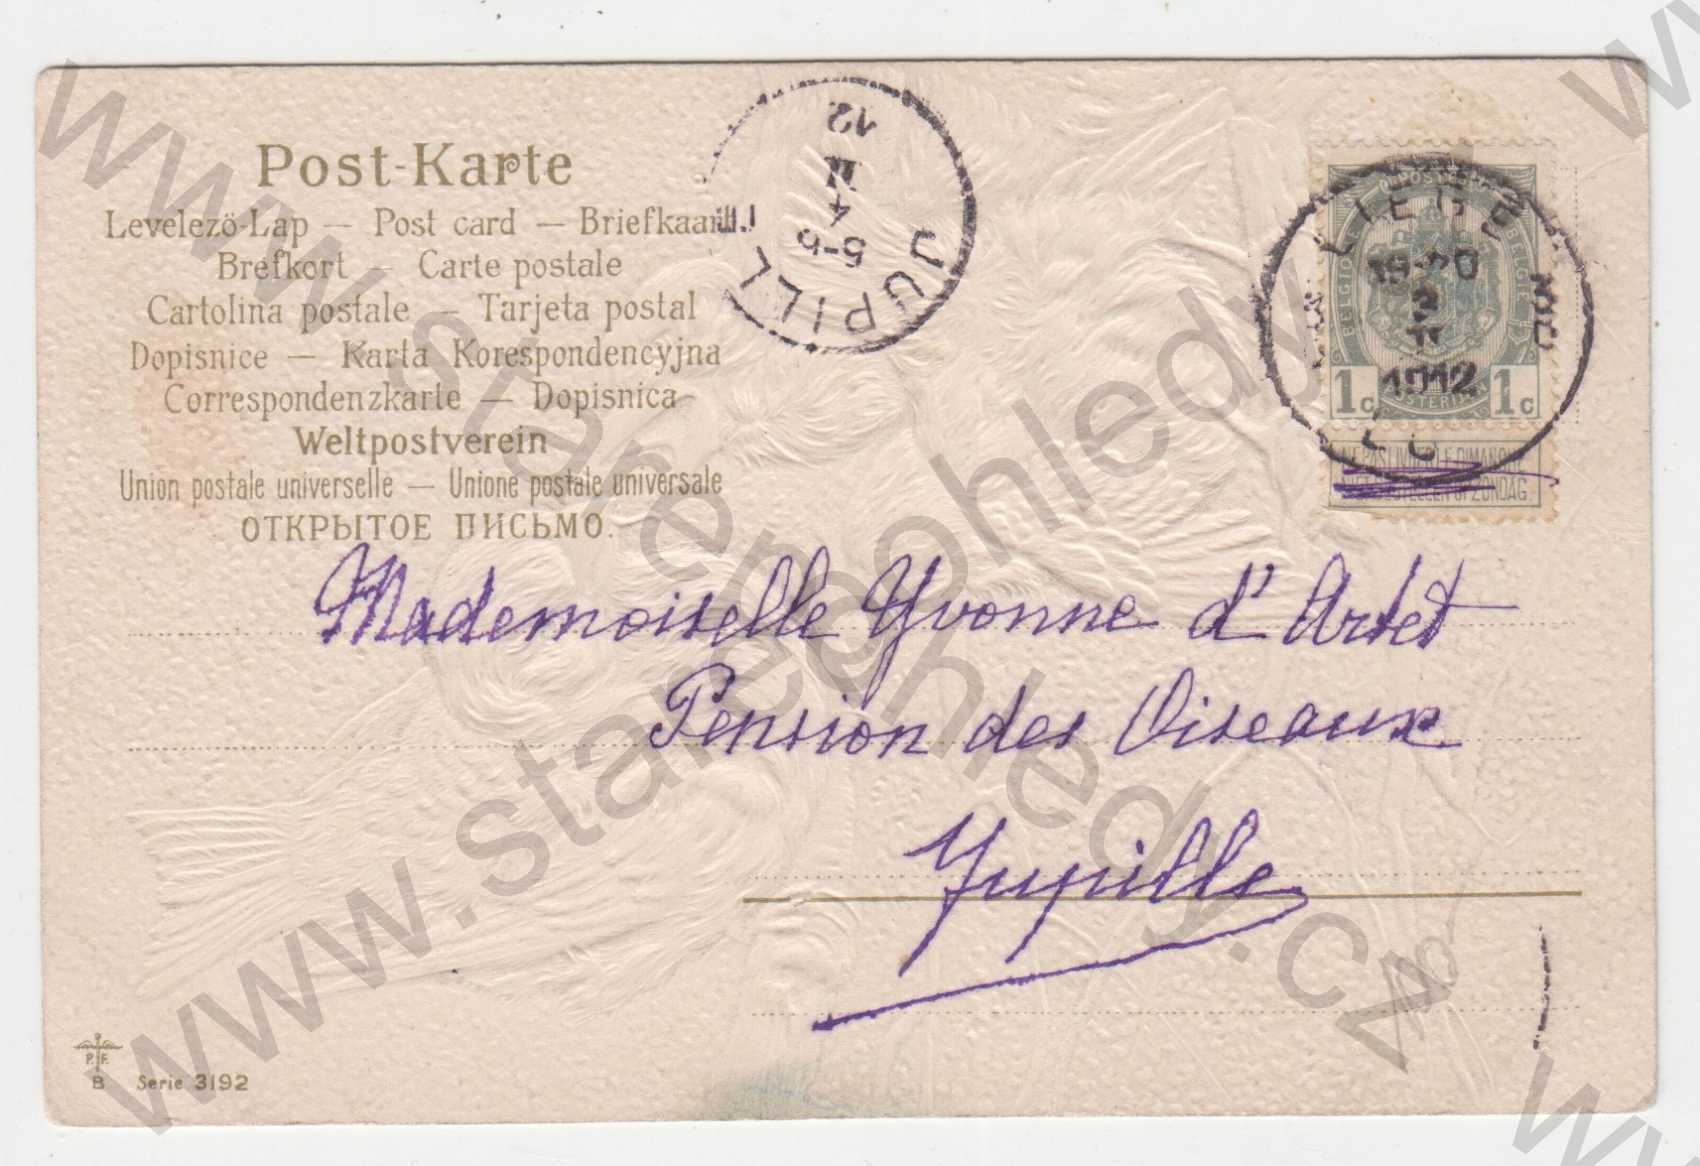 Post-Karte
Levelező-Lap — Post card — Briefkaart
Brefkort — Carte postale
Cartolina postale — Tarjeta postal
Dopisnice — Karta Korespondencyjna
Correspondenzkarte — Dopisnica
Weltpostverein
Union postale universelle — Unione postale universale
ОТКРЫТОЕ ПИСЬМО.
JUPILLE
5-6
4
II
12
LIEGE
2
II
1912
1c 1c
NIET BESTELLEN OP ZONDAG.
Mademoiselle Yvonne d'Artet
Pension des Oiseaux
Jupille
P. F.
B Serie 3192
www.starepohledy.cz
www.starepohledy.cz